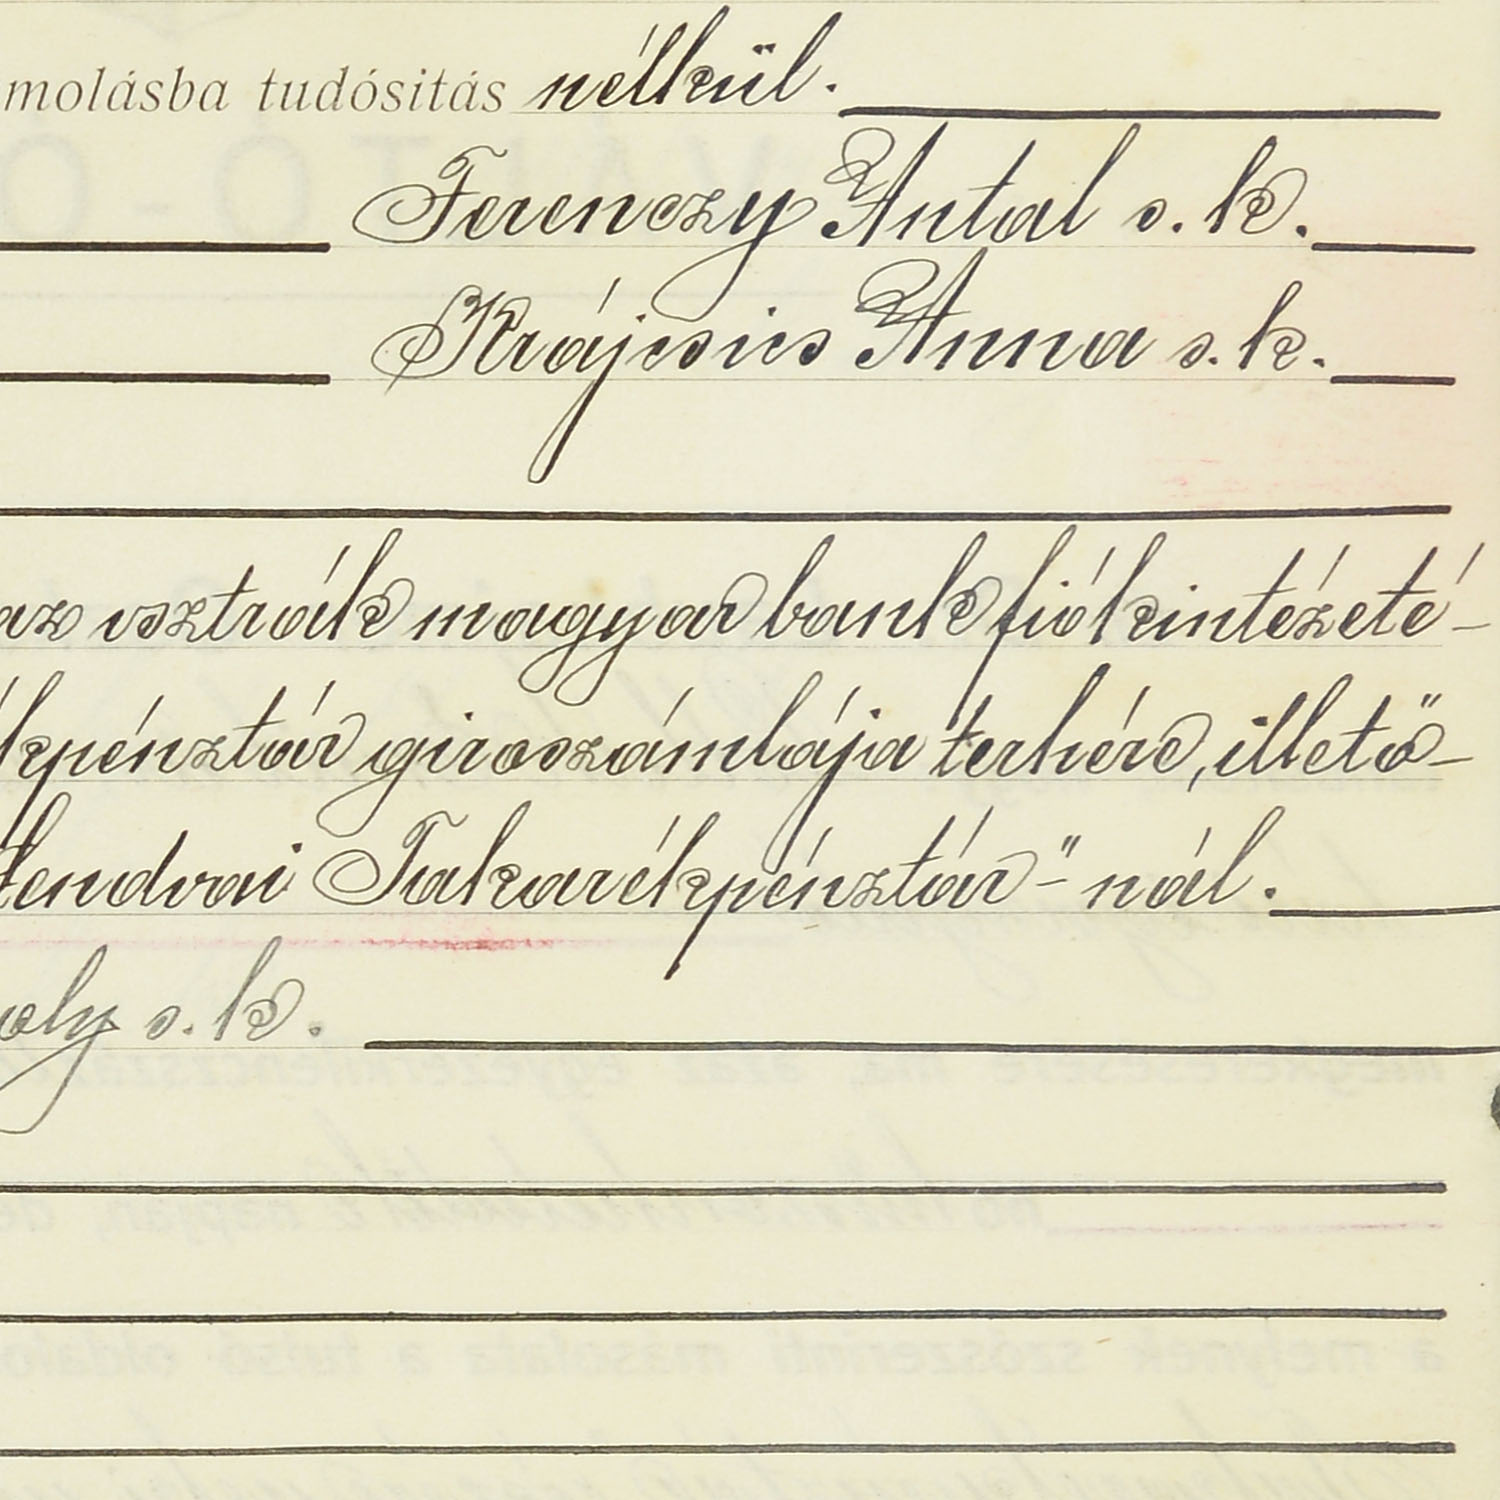 molásba tudósitás nélkül.
Ferenczy Antal s.k.
Krájcsics Anna s.k.
az osztrák magyar bank fiókintézeté-
kpénztár giroszámlája terhére, illető-
lendvai Takarékpénztár-"nál.
oly s.k.